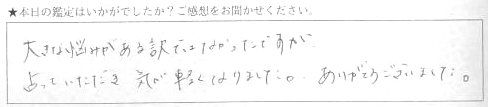 ★本日の鑑定はいかがでしたか？ご感想をお聞かせください。
大きな悩みがある訳ではなかったですが
占っていただき 気が軽くなりました。ありがとうございました。